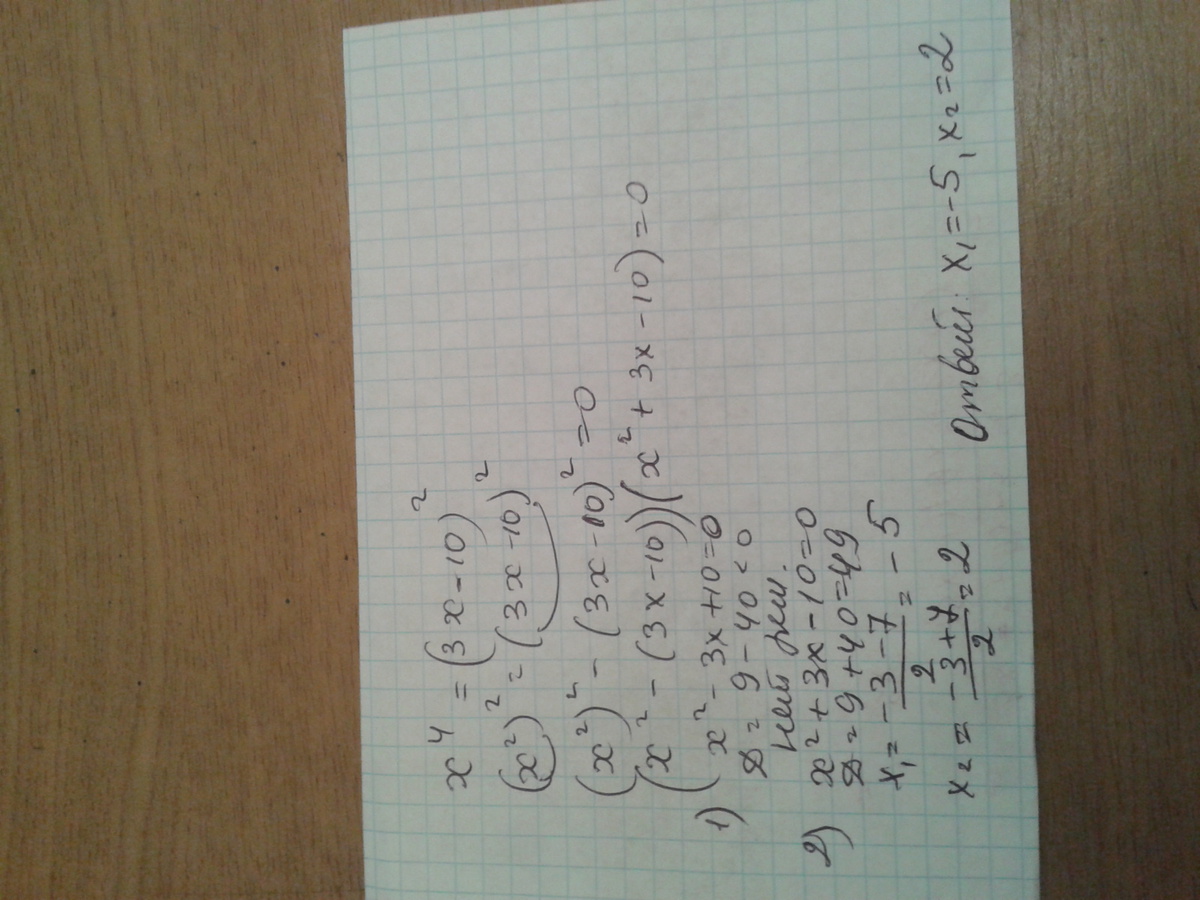 x⁴ = (3x - 10)²
(x²)² = (3x - 10)²
(x²)² - (3x - 10)² = 0
(x² - (3x - 10))(x² + 3x - 10) = 0
1) x² - 3x + 10 = 0
D = 9 - 40 < 0
нет реш.
2) x² + 3x - 10 = 0
D = 9 + 40 = 49
x₁ = (-3 - 7)/2 = -5
x₂ = (-3 + 7)/2 = 2
Ответ: x₁ = -5, x₂ = 2